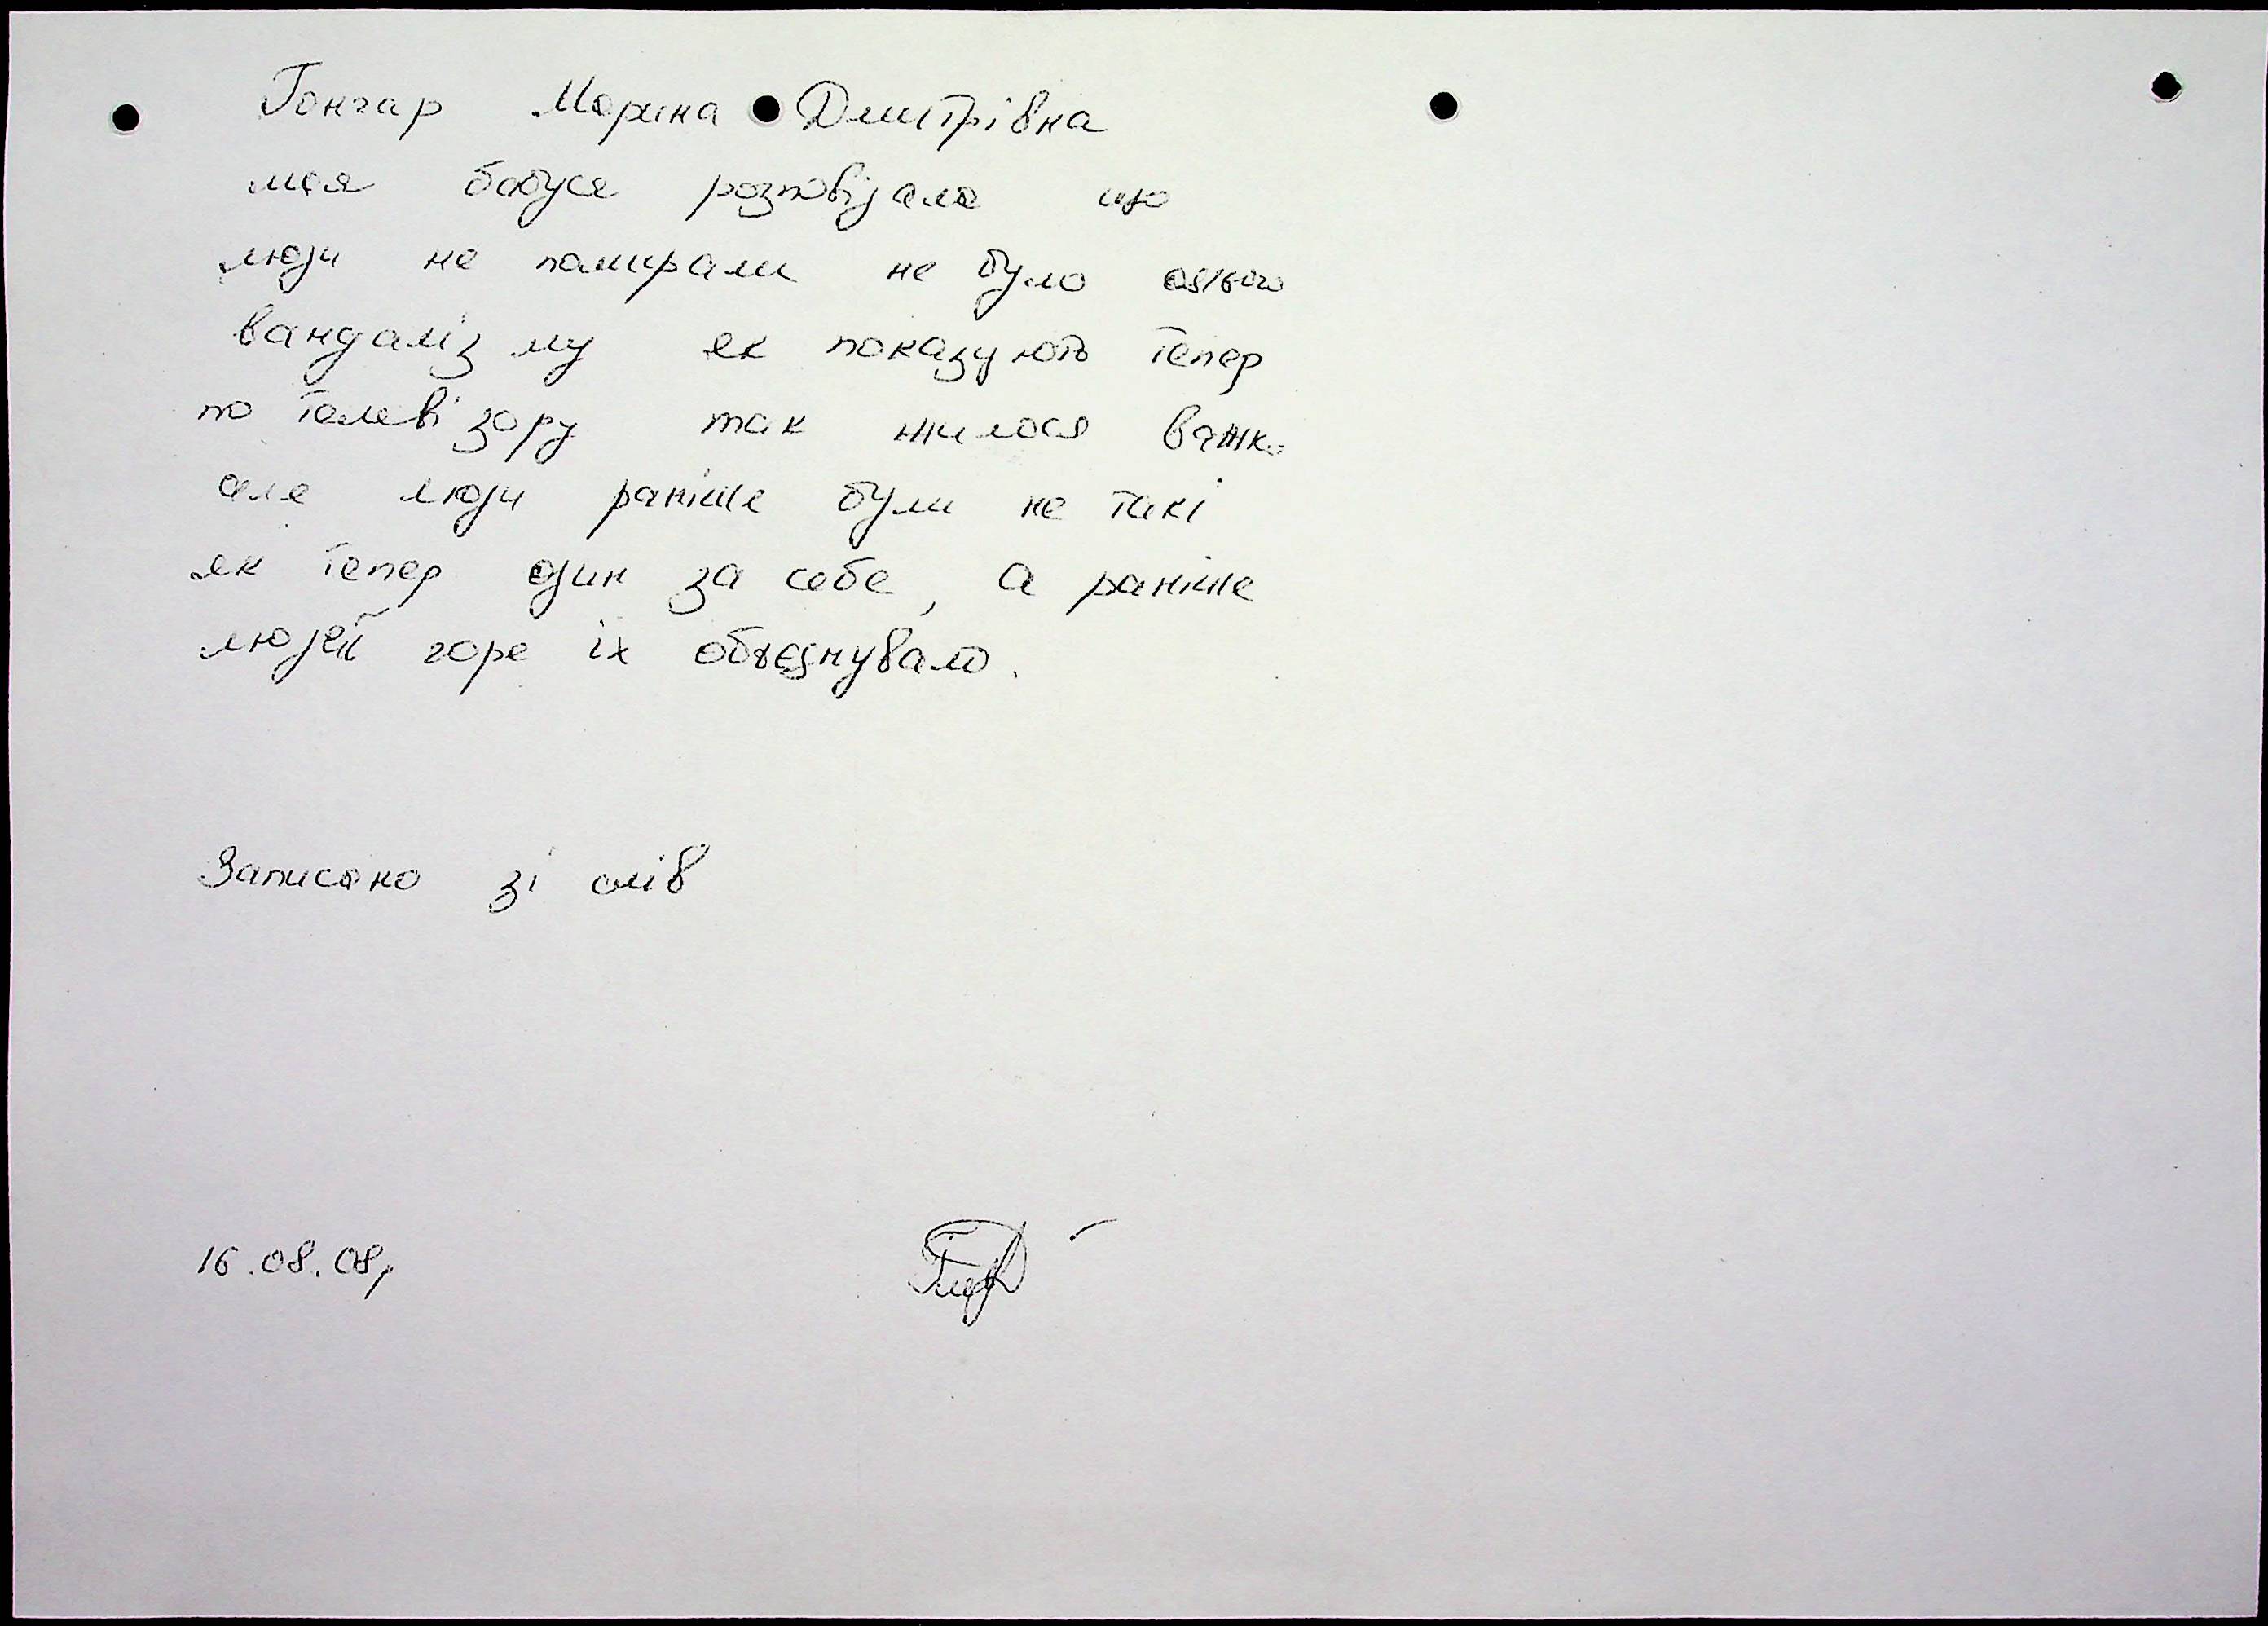 Гончар Марина Дмитрівна
моя бабуся розповідала що
люди не помирали не було
вандалізму як показують тепер
по телевізору так жилося важко
але люди раніше були не такі
як тепер один за себе, а раніше
людей горе їх обʼєднувало.
Записано зі слів
16.08.08р